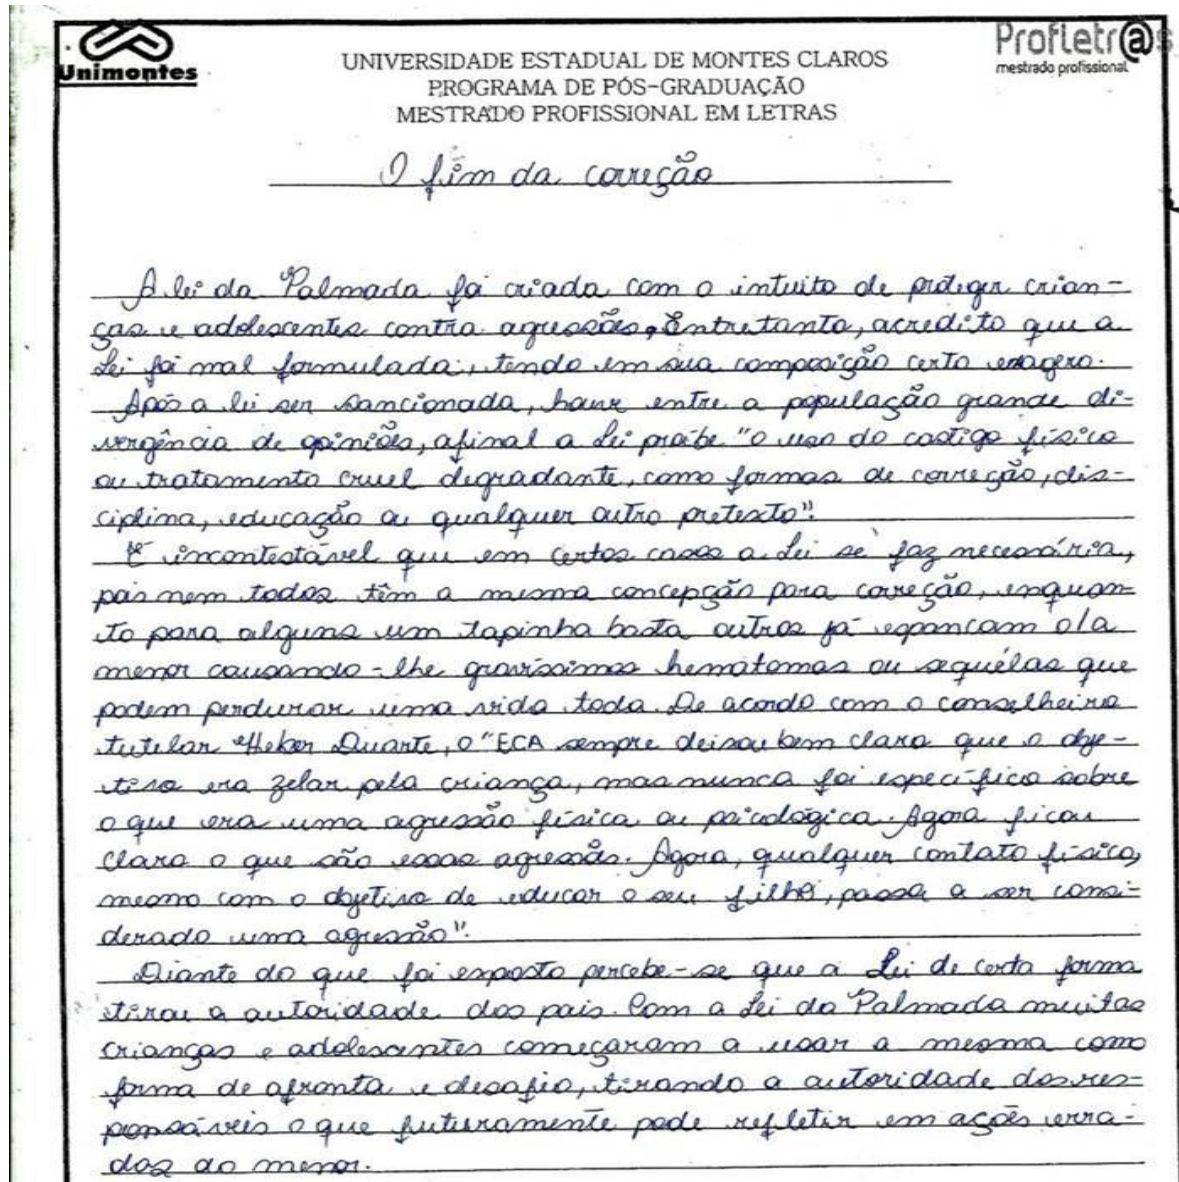 Unimontes
UNIVERSIDADE ESTADUAL DE MONTES CLAROS
PROGRAMA DE PÓS-GRADUAÇÃO
MESTRADO PROFISSIONAL EM LETRAS
Profletr@s
mestrado profissional
O fim da correção
A lei da Palmada foi criada com o intuito de proteger crian-
ças e adolescentes contra agressões, Entretanto, acredito que a
Lei foi mal formulada, tendo em sua composição certo exagero.
Após a lei ser sancionada, houve entre a população grande di-
vergência de opiniões, afinal a Lei proíbe "o uso do castigo físico
ou tratamento cruel degradante, como formas de correção, dis-
ciplina, educação ou qualquer outro pretexto".
É incontestável que em certos casos a Lei se faz necessária,
pois nem todos têm a mesma concepção para correção, enquan-
to para alguns um tapinha basta outros já espancam o/a
menor causando-lhe gravíssimos hematomas ou sequélas que
podem perdurar uma vida toda. De acordo com o conselheiro
tutelar Heber Duarte, o "ECA sempre deixou bem claro que o obje-
tivo era zelar pela criança, mas nunca foi específico sobre
o que era uma agressão física ou psicológica. Agora ficou
claro o que são essas agressões. Agora, qualquer contato físico,
mesmo com o objetivo de educar o seu filho, passa a ser consi-
derado uma agressão".
Diante do que foi exposto percebe-se que a Lei de certa forma
tirou a autoridade dos pais. Com a Lei da Palmada muitas
crianças e adolescentes começaram a usar a mesma como
forma de afronta e desafio, tirando a autoridade dos res-
ponsáveis o que futuramente pode refletir em ações erra-
das do menor.